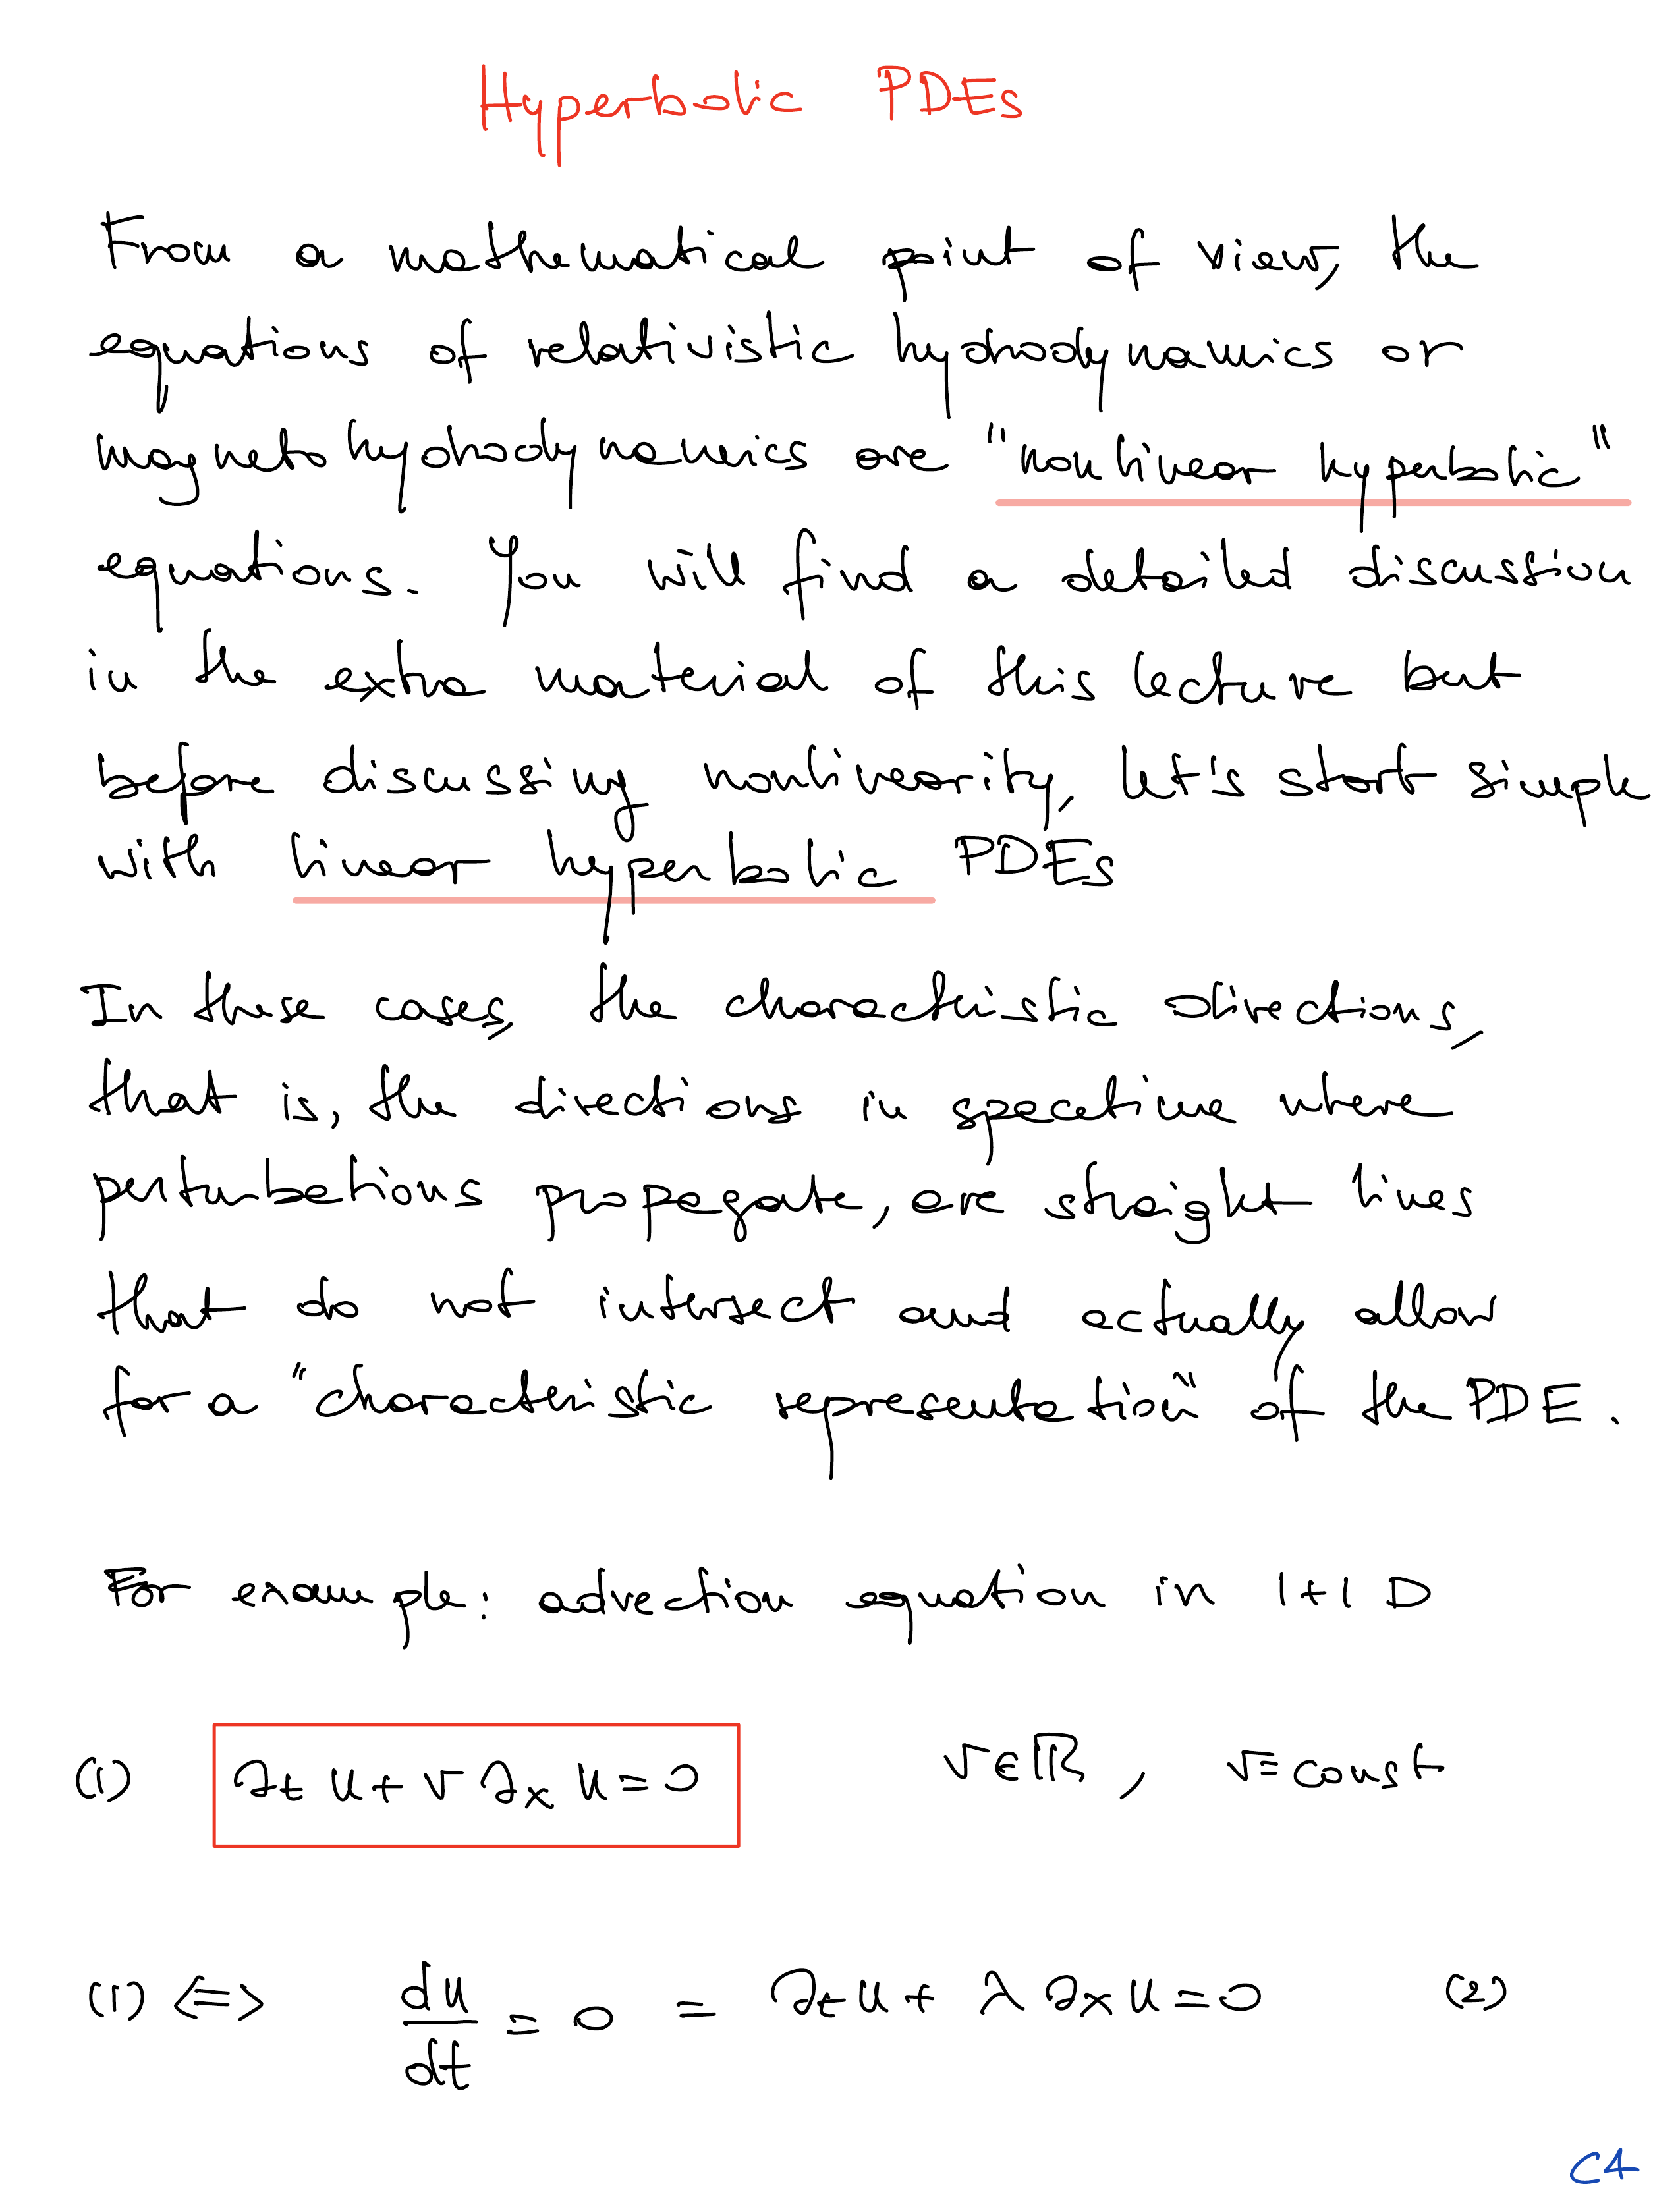 Hyperbolic PDEs
From a mathematical point of view, the
equations of relativistic hydrodynamics or
magnetohydrodynamics are "nonlinear hyperbolic"
equations. You will find a detailed discussion
in the extra material of this lecture but
before discussing nonlinearity, let's start simple
with linear hyperbolic PDEs
In these cases, the characteristic directions,
that is, the directions in spacetime where
perturbations propagate, are straight lines
that do not intersect and actually allow
for a "characteristic representation" of the PDE.
For example: advection equation in 1+1 D
(1) ∂t u + v ∂x u = 0 v∈ℝ, v=const
(1) ⟺ du/dt = 0 = ∂t u + λ ∂x u = 0 (2)
C4